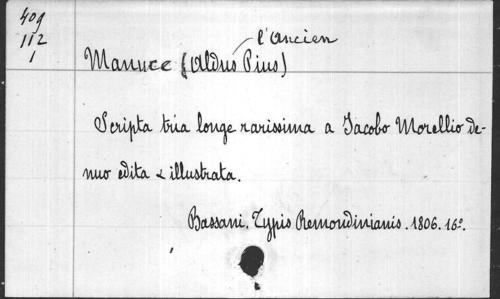 409
112
1
l'ancien
Manuce (Aldus Pius)
Scripta tria longe rarissima a Jacobo Morellio de-
nuo edita & illustrata.
Bassani. Typis Remondinianis. 1806. 16º.